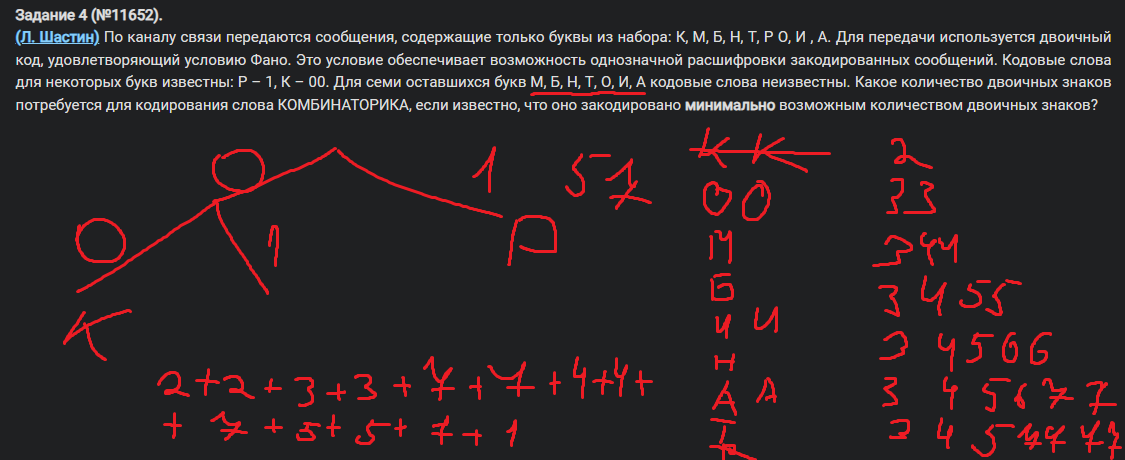 Задание 4 (№11652).
(Л. Шастин) По каналу связи передаются сообщения, содержащие только буквы из набора: К, М, Б, Н, Т, Р О, И , А. Для передачи используется двоичный
код, удовлетворяющий условию Фано. Это условие обеспечивает возможность однозначной расшифровки закодированных сообщений. Кодовые слова
для некоторых букв известны: Р – 1, К – 00. Для семи оставшихся букв М, Б, Н, Т, О, И, А кодовые слова неизвестны. Какое количество двоичных знаков
потребуется для кодирования слова КОМБИНАТОРИКА, если известно, что оно закодировано минимально возможным количеством двоичных знаков?
К К 2
0 1 57
0 1 00 33
М 344
Б 3 4 55
К И И 3 4 5 6 6
Н 3 4 5 6 7 7
2+2+3+3+7+7+4+4+ А А
+ 7+5+5+7+1 Т 3 4 5 7777
Р